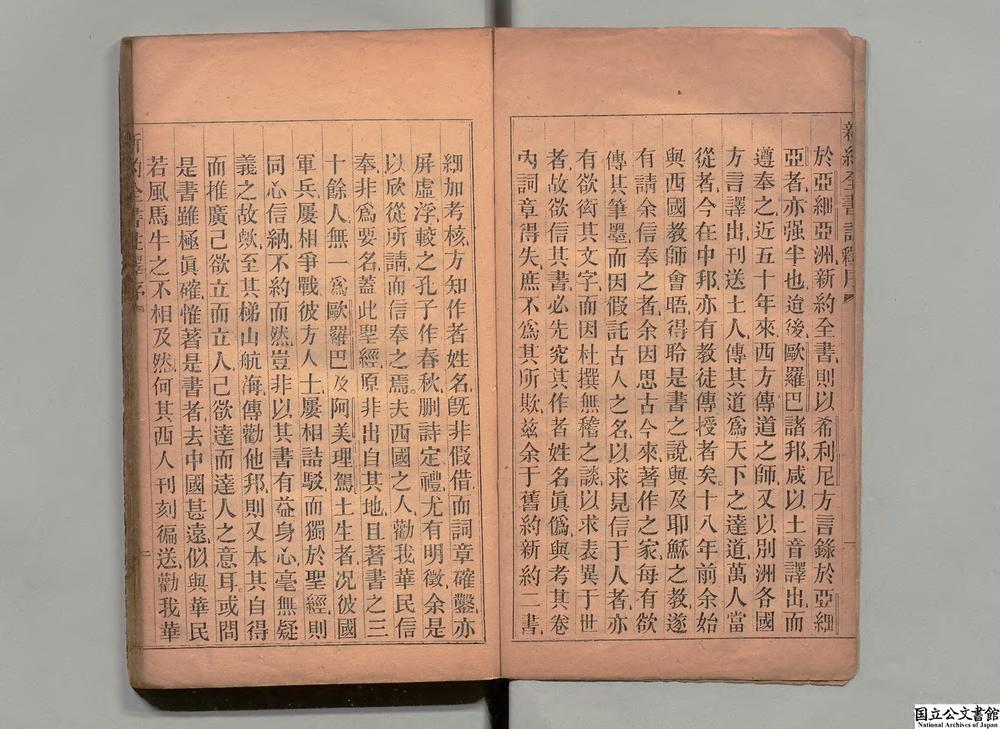 新約全書註釋序
於亞細亞洲新約全書則以希利尼方言錄於亞細
亞者亦强半也迨後歐羅巴諸邦咸以土音譯出而
遵奉之近五十年來西方傳道之師又以別洲各國
方言譯出刊送土人傳其道爲天下之達道萬人當
從者今在中邦亦有教徒傳授者矣十八年前余始
與西國教師會晤得聆是書之說與及耶穌之教遂
有請余信奉之者余因思古今來著作之家每有欲
傳其筆墨而因假託古人之名以求見信于人者亦
有欲衒其文字而因杜撰無稽之談以求表異于世
者故欲信其書必先究其作者姓名眞僞與考其卷
內詞章得失庶不爲其所欺玆余于舊約新約二書
細加考核方知作者姓名旣非假借而詞章確鑿亦
屏虛浮較之孔子作春秋删詩定禮尤有明徵余是
以欣從所請而信奉之焉夫西國之人勸我華民信
奉非爲要名蓋此聖經原非出自其地且著書之三
十餘人無一爲歐羅巴及阿美理駕土生者况彼國
軍兵屢相爭戰彼方人士屢相詰駁而獨於聖經則
同心信納不約而然豈非以其書有益身心毫無疑
義之故歟至其梯山航海傳勸他邦則又本其自得
而推廣己欲立而立人己欲達而達人之意耳或問
是書雖極眞確惟著是書者去中國甚遠似與華民
若風馬牛之不相及然何其西人刊刻徧送勸我華
新約全書註釋序
国立公文書館
National Archives of Japan